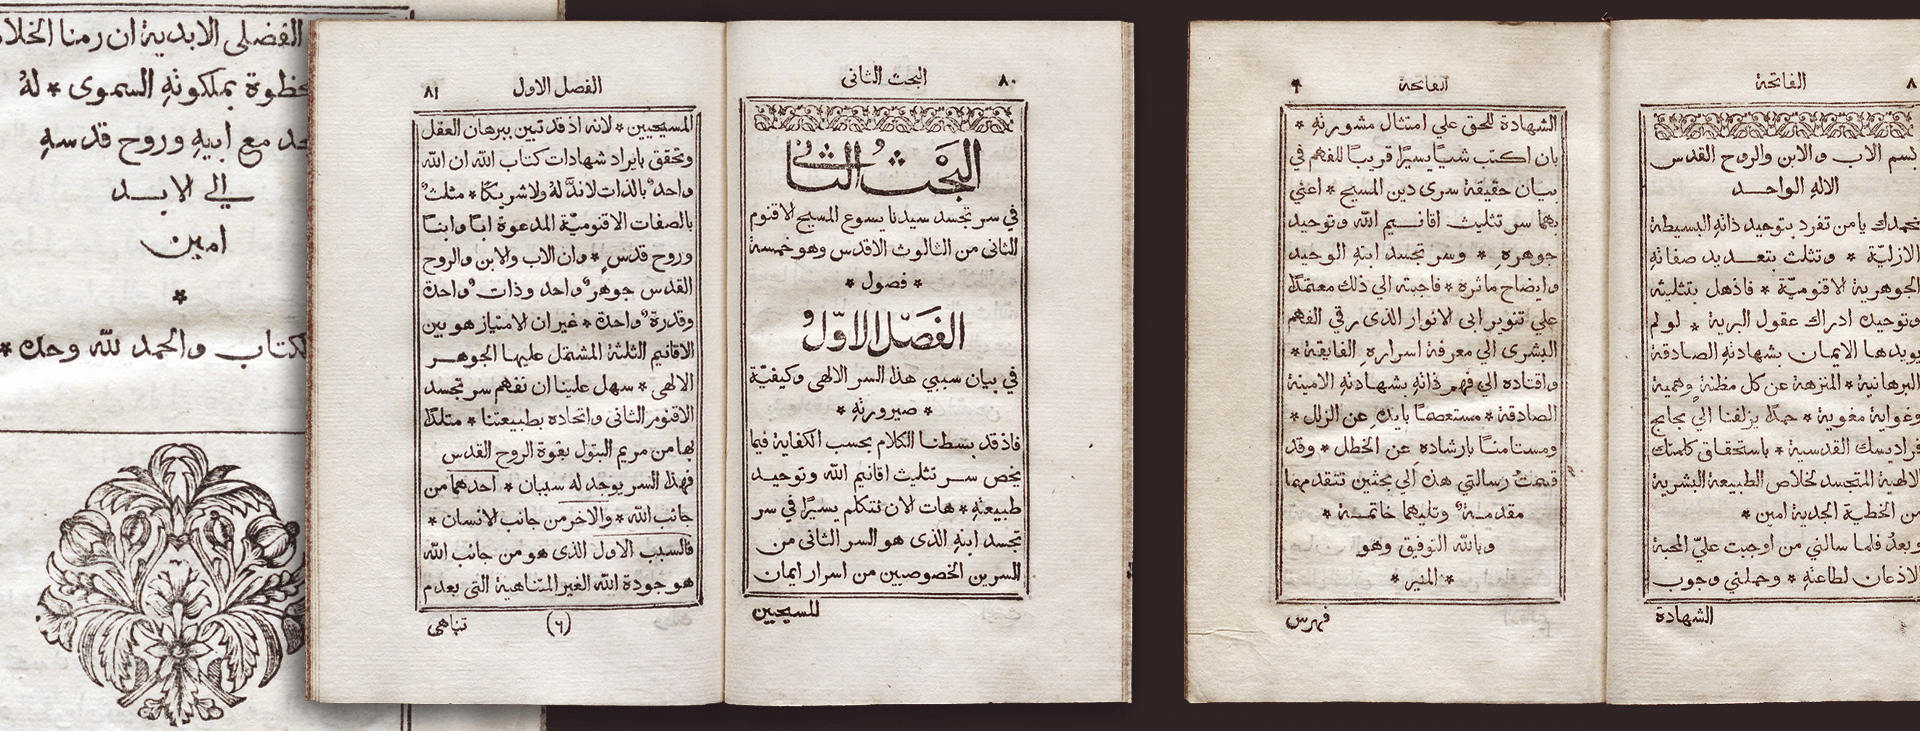 الفاتحة ٨
بسم الاب والابن والروح القدس
الاله الواحد
نحمدك يا من تفرد بتوحيد ذاتهِ البسيطة
الازليّة * وتثلث بتعديد صفاتهِ
الجوهرية الاقنوميّة * فاذهل بتثليثه
وتوحيده ادراك عقول البرية * لو لم
يويدها الايمان بشهادتهِ الصادقة
البرهانية * المنزهة عن كل مظنة وهمية
وغواية مغوية * حمدًا يزلفنا الي بحابح
فراديسك القدسية * باستحقاق كلمتك
الالهية المتجسد لخلاص الطبيعة البشرية
من الخطية الجدية امين *
وبعدُ فلما سالني من اوجبت عليّ المحبة
الاذعان لطاعتهِ * وحملني وجوب
الشهادة
الفاتحة ٩
الشهادة للحق علي امتثال مشورتهِ *
بان اكتب شيًا يسيرًا قريبًا للفهم في
بيان حقيقة سرى دين المسيح * اعني
بهما سر تثليث اقانيم الله وتوحيد
جوهرهِ * وسر تجسد ابنهِ الوحيد
وايضاح ماثره * فاجبته الي ذلك معتمدًا
علي تنوير ابى الانوار الذى رقي الفهم
البشرى الي معرفة اسرارهِ الفايقة *
واقتاده الي فهم ذاتهِ بشهادتهِ الامينة
الصادقة * مستعصمًا بايدهِ عن الزلل *
ومستامنًا بارشاده عن الخطل * وقد
قسمتُ رسالتي هذه الي بحثين تتقدمهما
مقدمة وتليهما خاتمة *
وبالله التوفيق وهو
* المنير *
فهرس
البحث الثانى ٨٠
البَحْثُ الثَّانُى
في سر تجسد سيدنا يسوع المسيح الاقنوم
الثانى من الثالوث الاقدس وهو خمسة
* فصول *
الفَصْل الاوّلُ
في بيان سببي هذا السر الالهى وكيفيّة
* صيرورتهِ *
فاذ قد بسطنا الكلام بحسب الكفاية فيما
يخص سر تثليث اقانيم الله وتوحيد
طبيعتهِ * هات الان نتكلم يسيرًا في سر
تجسد ابنهِ الذى هو السر الثانى من
السرين الخصوصيين من اسرار ايمان
المسيحيين
الفصل الاول ٨١
المسيحيين * لانه اذ قد تبين ببرهان العقل
وتحقق بايراد شهادات كتاب الله ان الله
واحدٌ بالذات لا ندَّ لهُ ولا شريكًا * مثلثٌ
بالصفات الاقنوميّة المدعوة ابًا وابنًا
وروح قدسٍ * وان الاب والابن والروح
القدس جوهرٌ واحد وذات واحدة
وقدرة واحدة * غير ان الامتياز هو بين
الاقانيم الثلثة المشتمل عليها الجوهر
الالهى * سهل علينا ان نفهم سر تجسد
الاقنوم الثانى واتحاده بطبيعتنا * متلدًا
لها من مريم البتول بقوة الروح القدس
فهذا السر يوجد له سببان * احدهما من
جانب الله * والاخر من جانب الانسان *
فالسبب الاول الذى هو من جانب الله
هو جودة الله الغير المتناهية التى بعدم
تناهى (٦)
الفضلي الابدية ان رمنا الخلا
حظوة بملكوتهِ السموى * لهُ
جد مع ابيهِ وروح قدسهِ
الي الابد
امين
*
كتاب والحمد لله وحده *